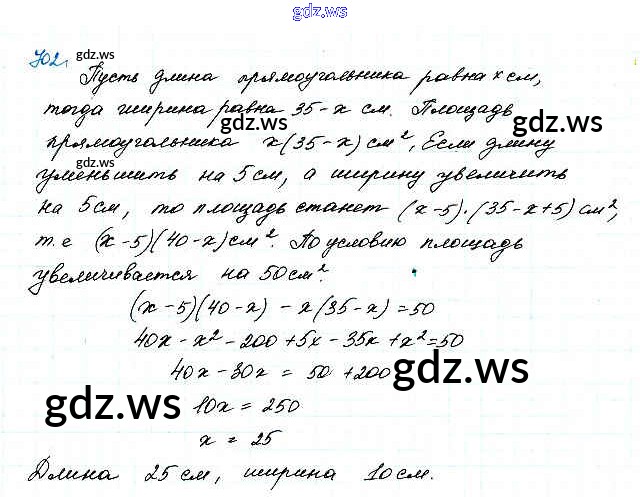 gdz.ws
702.
gdz.ws
Пусть длина прямоугольника равна x см,
тогда ширина равна 35-x см. Площадь
gdz.ws
gdz.ws
прямоугольника x(35-x) см², Если длину
gdz.ws
уменьшить на 5 см, а ширину увеличить
на 5 см, то площадь станет (x-5)·(35-x+5) см²,
т.е (x-5)(40-x) см². По условию площадь
увеличивается на 50 см².
(x-5)(40-x) - x(35-x) = 50
40x - x² - 200 + 5x - 35x + x² = 50
40x - 30x = 50 + 200
gdz.ws
gdz.ws
10x = 250
gdz.ws
x = 25
Длина 25 см, ширина 10 см.